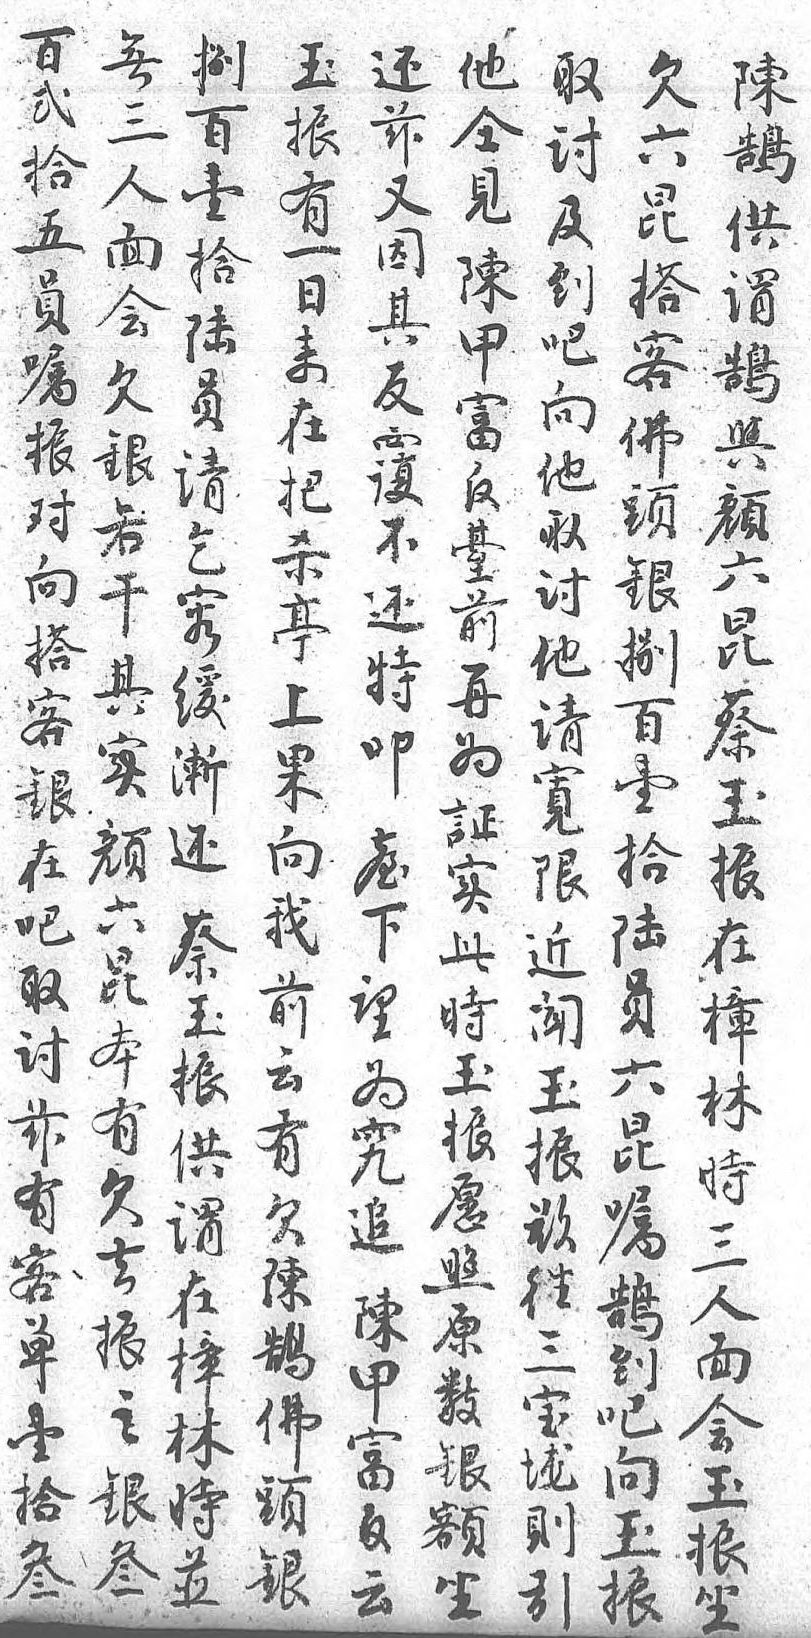 陳鵠供謂鵠與顏六昆蔡玉振在樟林時三人面会玉振坐
欠六昆搭客佛頭銀捌百壹拾陆員六昆嘱鵠到吧向玉振
取討及到吧向他取討他請寬限近闻玉振欲往三宝垅則引
他全見陳甲富殳臺前再为証实此時玉振愿照原数銀額坐
还玆又因其反覆不还特叩台下望为究追陳甲富殳云
玉振有一日来在把杀亭上果向我前云有欠陳鵠佛頭銀
捌百壹拾陆員請乞寄缓漸还蔡玉振供謂在樟林時並
無三人面会欠銀若干其实顏六昆本有欠去振之銀叁
百弍拾五員嘱振对向搭客銀在吧取討玆有客单壹拾叁